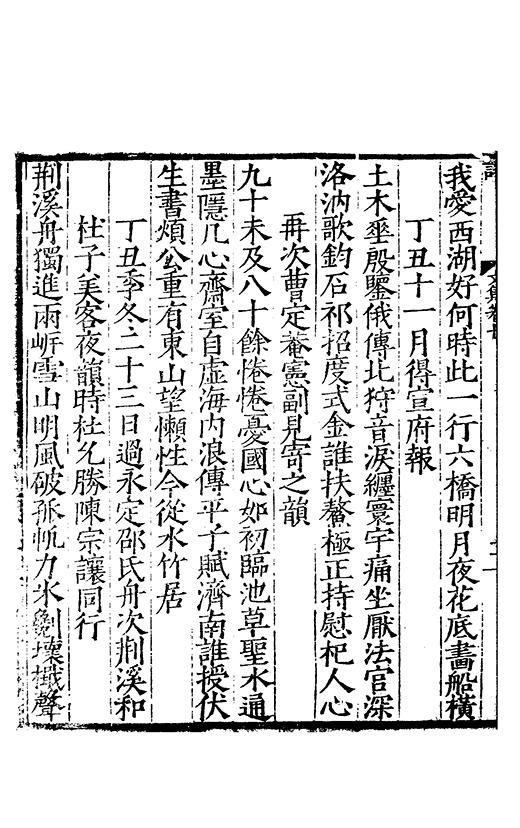 我愛西湖好何時此一行六橋明月夜花底畫船橫
丁丑十一月得宣府報
土木垂殷鑒俄傳北狩音淚纏寰宇痛坐厭法官深
洛汭歌鈞石祁招度式金誰扶鰲極正持慰杞人心
再次曹定菴憲副見寄之韻
九十未及八十餘惓惓憂國心如初臨池草聖水通
墨隱几心齋室自虛海內浪傳平子賦濟南誰授伏
生書煩公重有東山望懶性今從水竹居
丁丑季冬二十三日過永定邵氏舟次荆溪和
杜子美客夜韻時杜允勝陳宗讓同行
荆溪舟獨進兩岍雪山明風破孤帆力氷壞檝聲